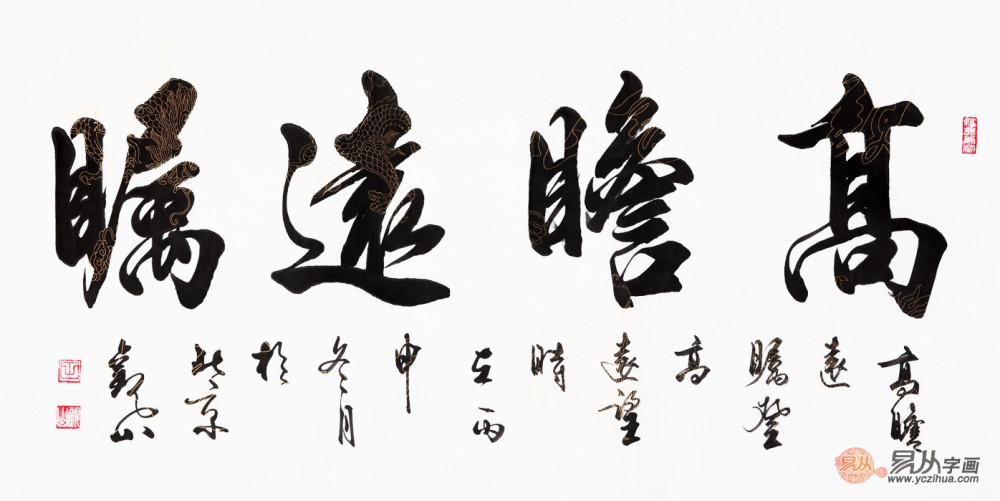 高瞻遠矚
高瞻
遠
矚登
高
遠望
時
在丙
申
冬月
於
北京
山
易从字画
www.yczihua.com